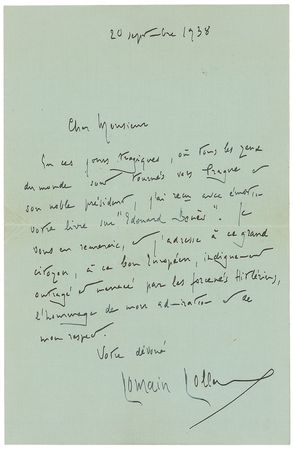 20 septembre 1938
Cher Monsieur
En ces jours tragiques, où tous les yeux
du monde sont tournés vers Prague et
son noble président, j'ai reçu avec émotion
votre livre sur "Édouard Benès". Je
vous en remercie, et j'adresse à ce grand
citoyen, à ce bon Européen, indignement
outragé et menacé par les forcenés Hitlériens,
l'hommage de mon admiration et de
mon respect.
Votre dévoué
Romain Rolland